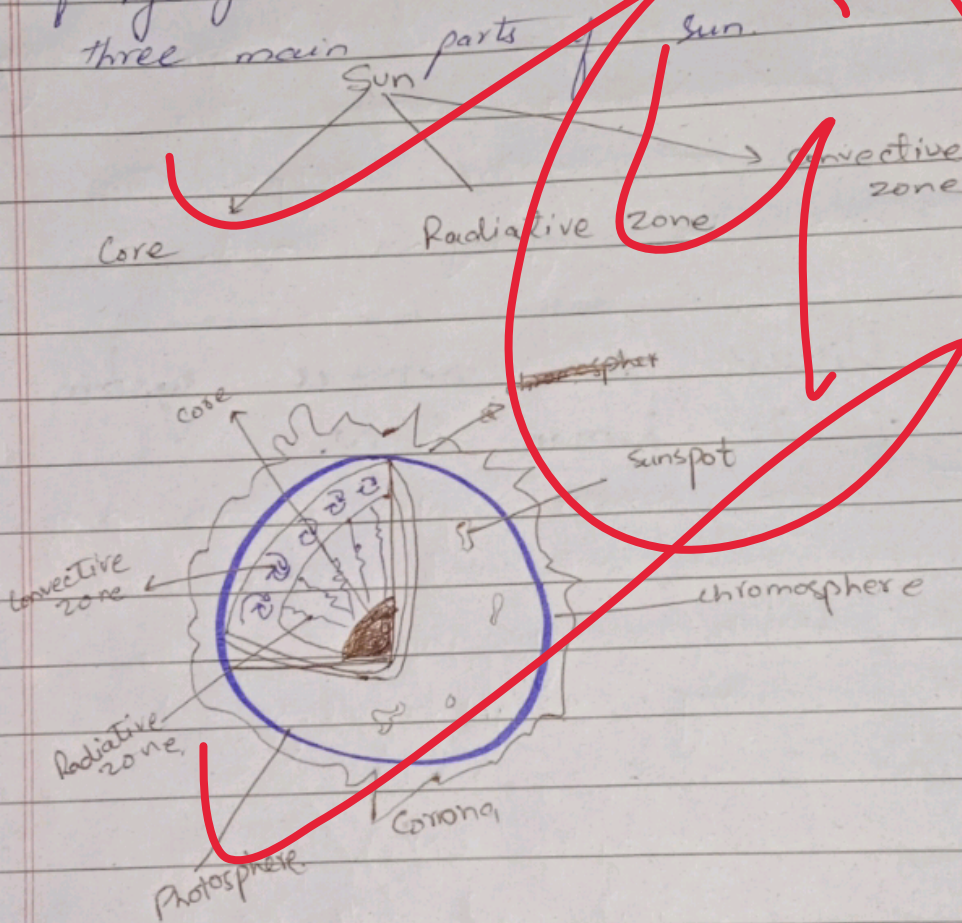 three main parts of sun.
Sun
convective
zone
Core Radiative zone
core
sunspot
convective
zone
chromosphere
Radiative
zone,
Corrona,
Photosphere.